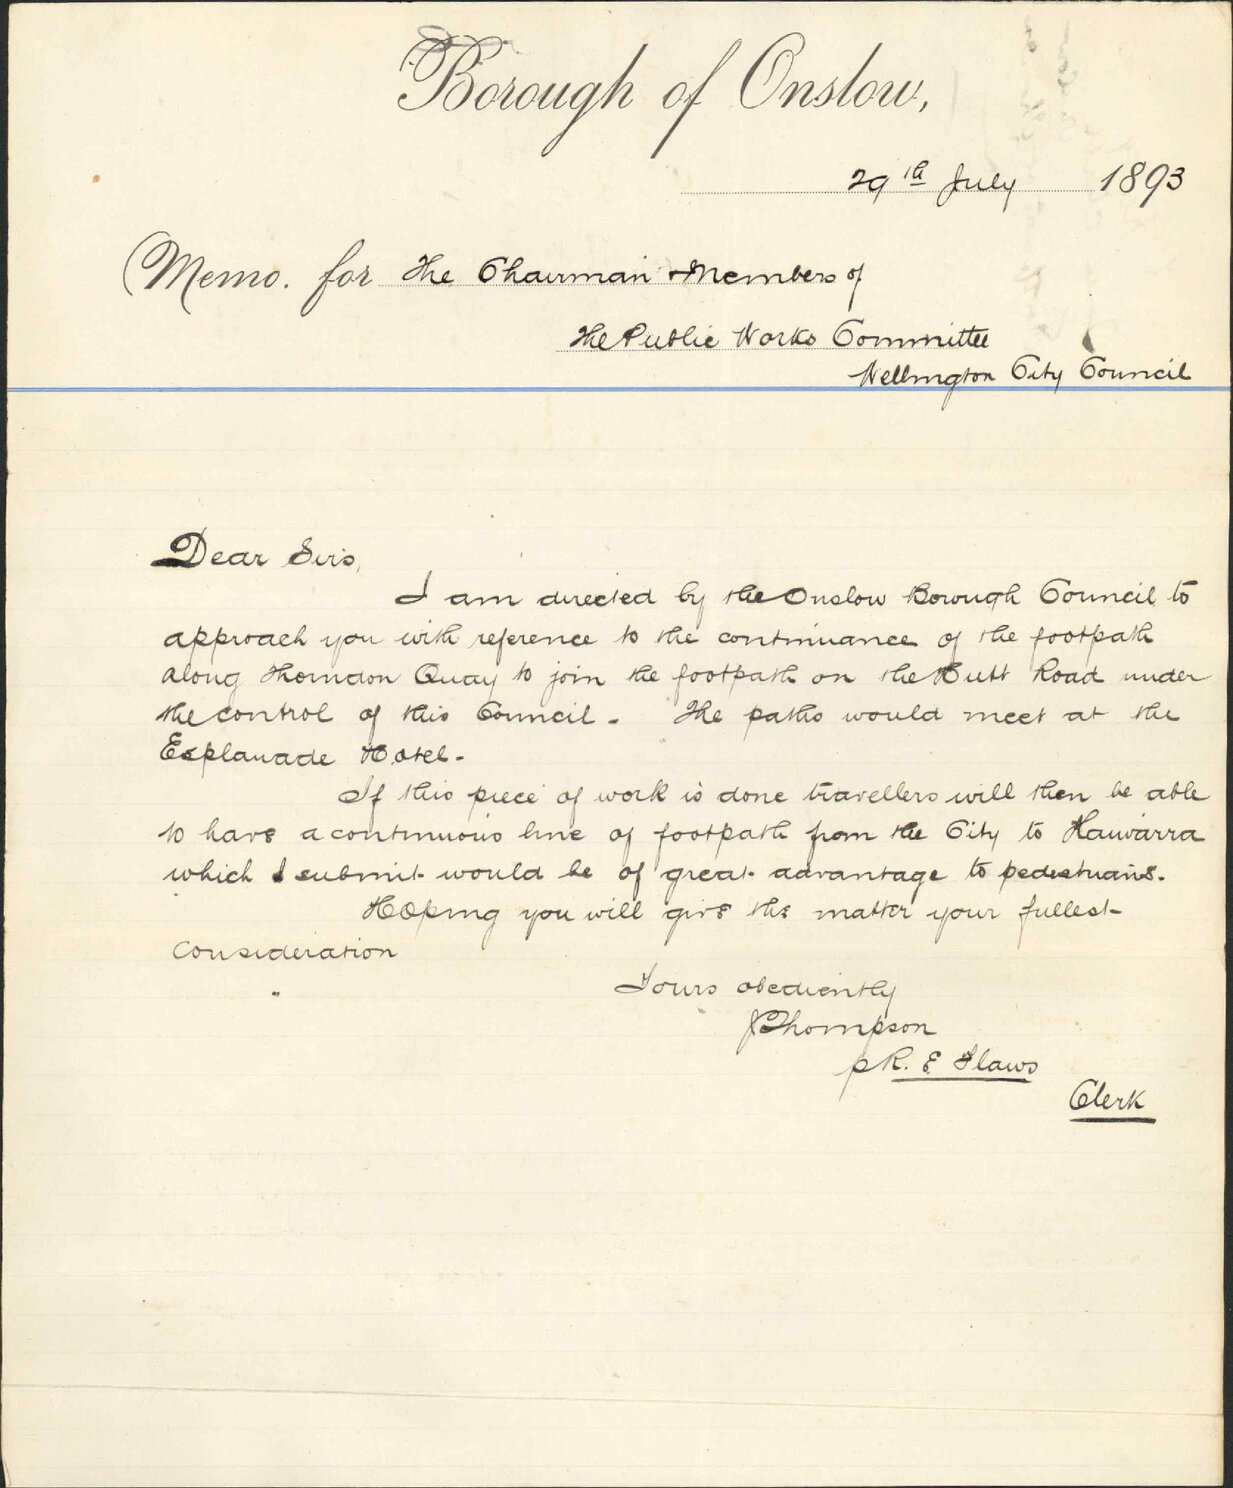 Borough of Onslow,
29th July 1893
Memo. for The Chairman & Members of
The Public Works Committee
Wellington City Council
Dear Sirs,
I am directed by the Onslow Borough Council to
approach you with reference to the continuance of the footpath
along Thorndon Quay to join the footpath on the Hutt Road under
the control of this Council. The paths would meet at the
Esplanade Hotel.
If this piece of work is done travellers will then be able
to have a continuous line of footpath from the City to Kaiwarra
which I submit would be of great advantage to pedestrians.
Hoping you will give the matter your fullest
consideration
Yours obediently
JThompson
p R. E Flaws
Clerk